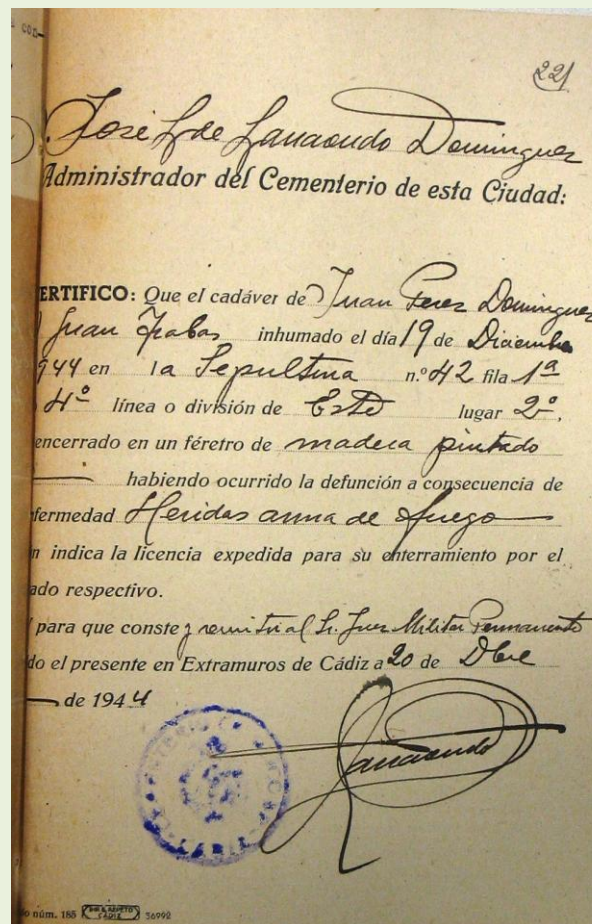 con-
221
José L de Larraondo Dominguez
Administrador del Cementerio de esta Ciudad:
ERTIFICO: Que el cadáver de Juan Perez Dominguez
Juan inhumado el día 19 de Diciembre
1944 en la Sepultura n.º 42 fila 1ª
4º línea o división de Este lugar 2º,
encerrado en un féretro de madera pintado
habiendo ocurrido la defunción a consecuencia de
fermedad Heridas arma de fuego
n indica la licencia expedida para su enterramiento por el
ado respectivo.
para que conste y remitir al Sr. Juez Militar Permanente
do el presente en Extramuros de Cádiz a 20 de Dbre
de 1944
Larraondo
o núm. 185 CÁDIZ 36992